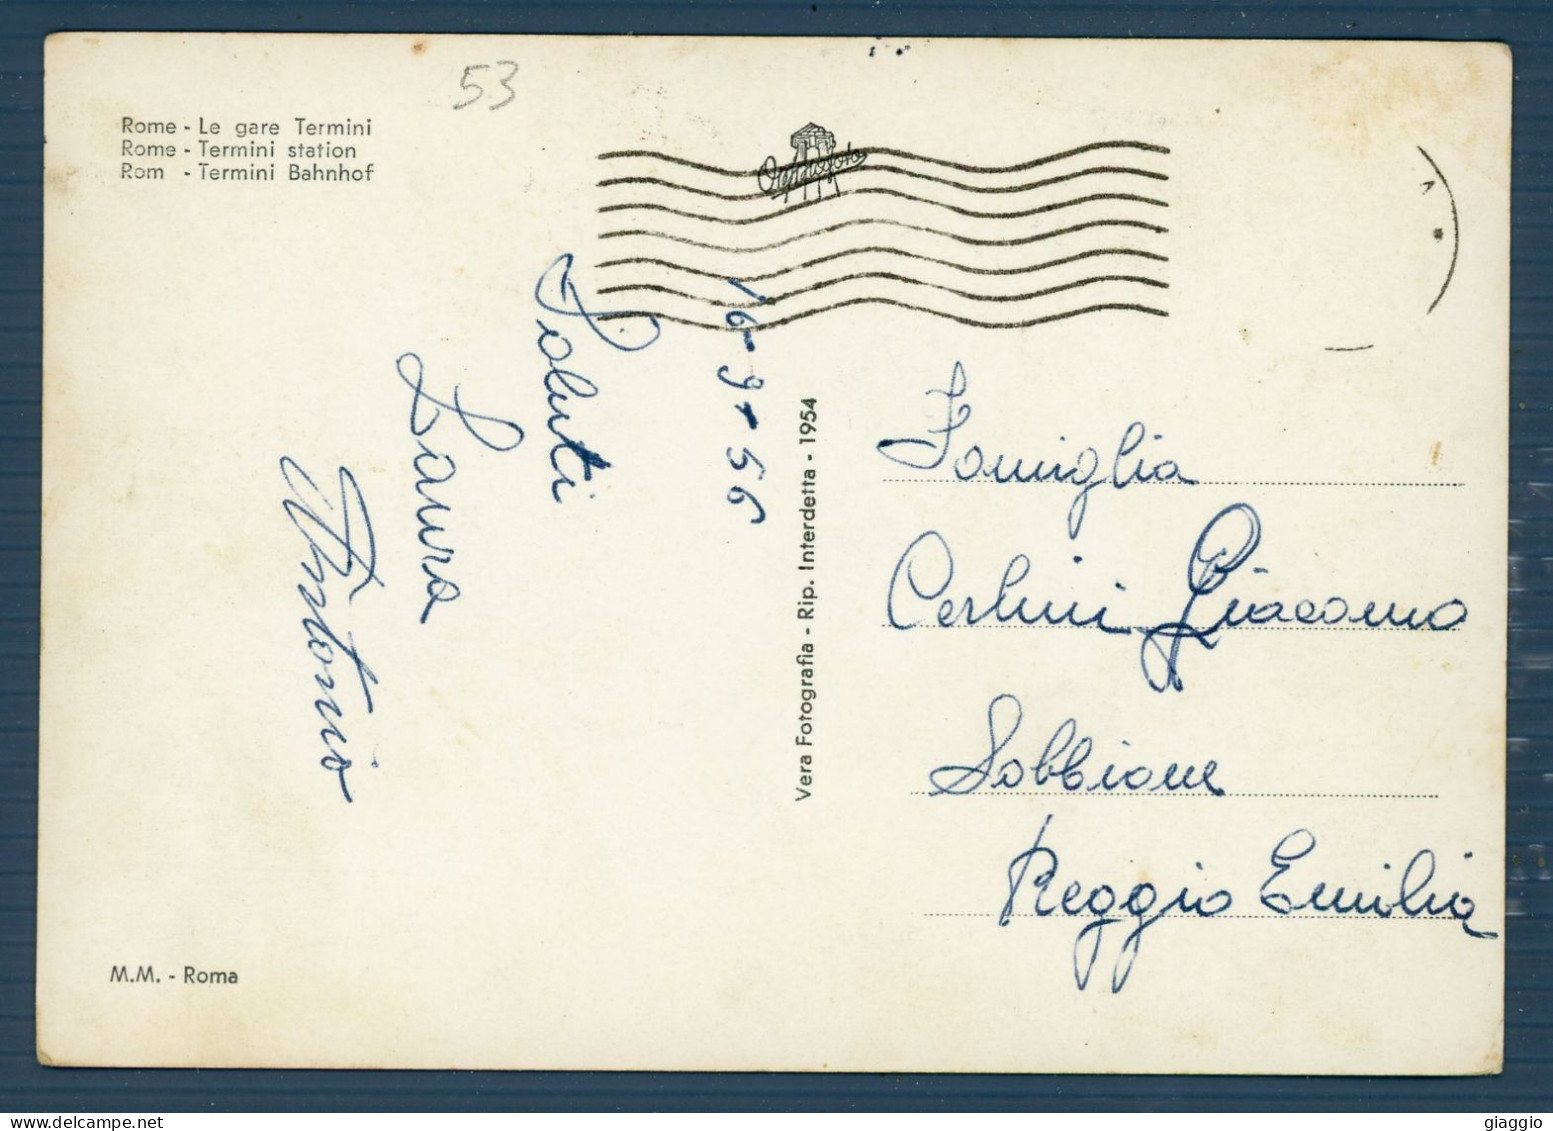 53
Rome - Le gare Termini
Rome - Termini station
Rom - Termini Bahnhof
16-9-56
Saluti
Laura
Antonio
Vera Fotografia - Rip. Interdetta - 1954
Famiglia
Cerlini Giacomo
Sabbione
Reggio Emilia
M.M. - Roma
giaggio